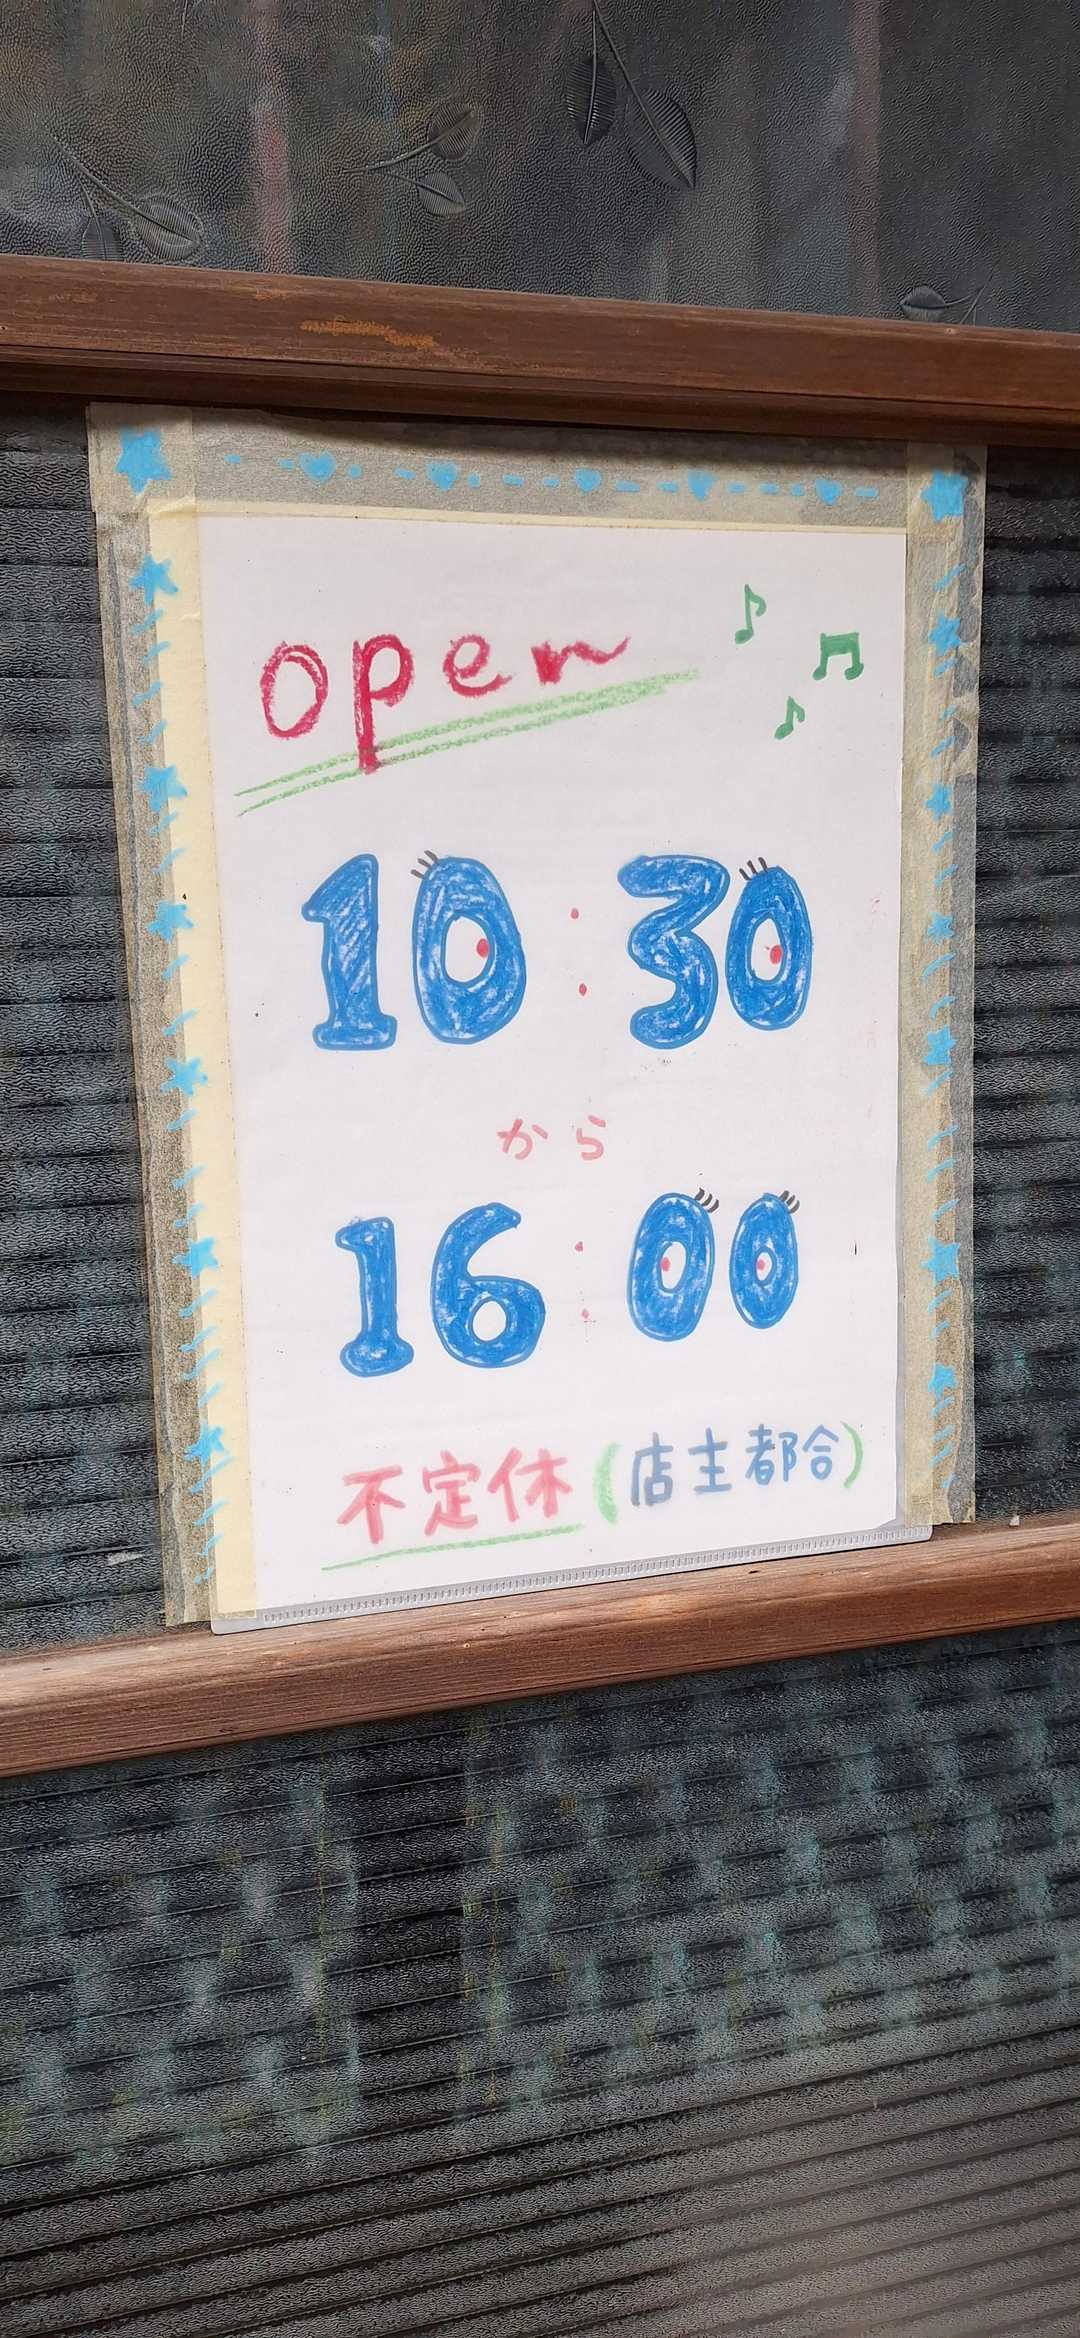 open
10:30
から
16:00
不定休(店主都合)